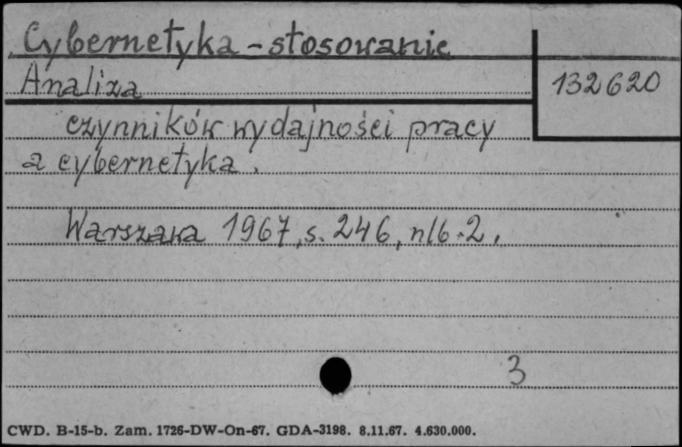 Cybernetyka - stosowanie
Analiza
132620
czynników wydajności pracy
a cybernetyka.
Warszawa 1967, s. 246, nlb. 2.
3
CWD. B-15-b. Zam. 1726-DW-On-67. GDA-3198. 8.11.67. 4.630.000.